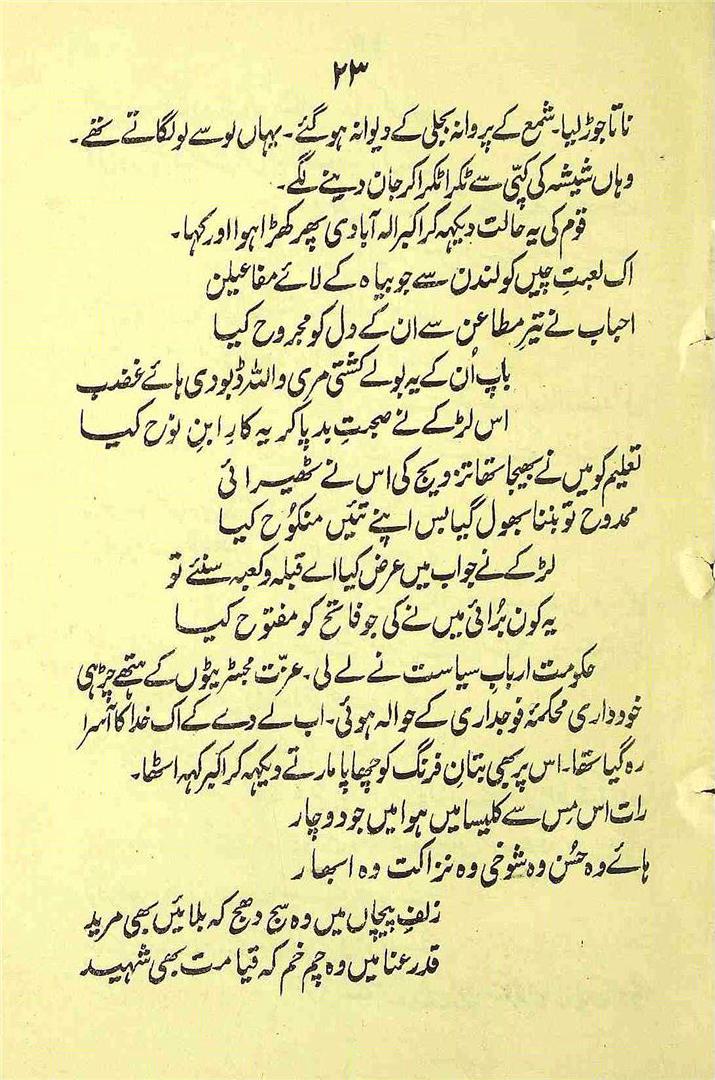 ۲۳
ناتا جوڑ لیا۔ شمع کے پروانہ بجلی کے دیوانہ ہو گئے۔ یہاں لو سے لو لگاتے تھے۔
وہاں شیشہ کی کپّی سے ٹکرا ٹکرا کر جان دینے لگے۔
قوم کی یہ حالت دیکھہ کر اکبر الہ آبادی پھر کھڑا ہوا اور کہا۔
اک لعبتِ چیں کو لندن سے جو بیاہ کے لائے مفاعیلن
احباب نے تیرِ مطاعن سے ان کے دل کو مجروح کیا
باپ اُن کے یہ بولے کشتی مری واللہ ڈبو دی ہائے غضب
اس لڑکے نے صحبتِ بد پا کر یہ کارِ ابنِ نوح کیا
تعلیم کو میں نے بھیجا تھا تزویج کی اس نے ٹھیرائی
ممدوح تو بننا بھول گیا بس اپنے تئیں منکوُح کیا
لڑکے نے جواب میں عرض کیا اے قبلہ و کعبہ سنئے تو
یہ کون بُرائی میں نے کی جو فاتح کو مفتوح کیا
حکومت اربابِ سیاست نے لے لی۔ عزّت مجسٹریٹوں کے ہتھے چڑہی
خودداری محکمۂ فوجداری کے حوالہ ہوئی۔ اب لے دے کے اک خدا کا آسرا
رہ گیا تھا۔ اس پر بھی بتانِ فرنگ کو چھاپا مارتے دیکھہ کر اکبر کہہ اٹھا۔
رات اس مِس سے کلیسا میں ہوا میں جو دوچار
ہائے وہ حسُن وہ شوخی وہ نزاکت وہ ابھار
زلفِ پیچاں میں وہ سج دھج کہ بلائیں بھی مرید
قد رعنا میں وہ چم خم کہ قیامت بھی شہید